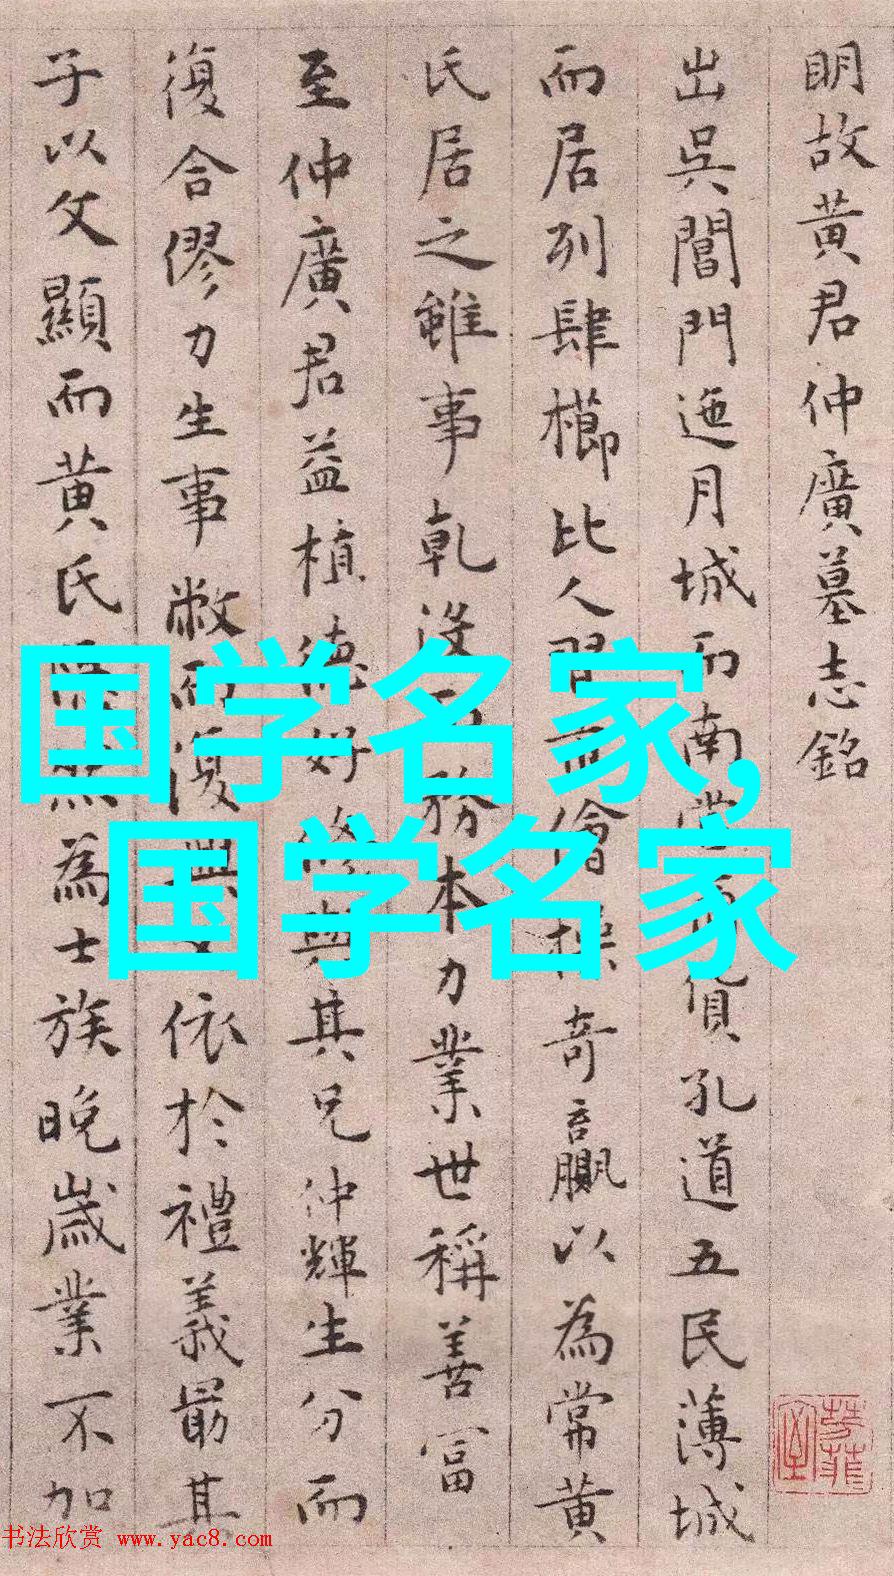 明故黄君仲廣墓志銘
出吳閶門迤月城而南貨孔道五民薄城
而居列肆櫛比人儈操奇贏以為常黄
氏居之雖事乾没而務本力業世稱善富
至仲廣君益植德好脩與其兄仲輝生分而
復合僇力生事敝而復興依於禮義最其
子以文顯而黄氏然為士族晚歲業不加
国学名家,
国学名家
书法欣赏 www.yac8.com